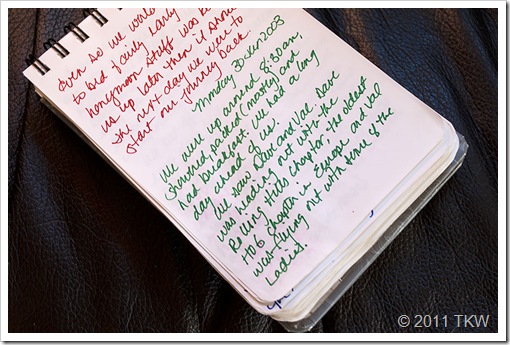 Even so we would
to bed fairly early
honeymoon stuff was
us up later then it should
the next day we were to
start our journey back.
Monday 30 2003
We were up around 8:30am,
showered, packed (mostly) and
had breakfast. We had a long
day ahead of us.
We saw Dave and Val. Dave
was heading out with the
Rolling Hills chapter, the oldest
HOG chapter in Europe and Val
was flying out with some of the
Ladies.
© 2011 TKW